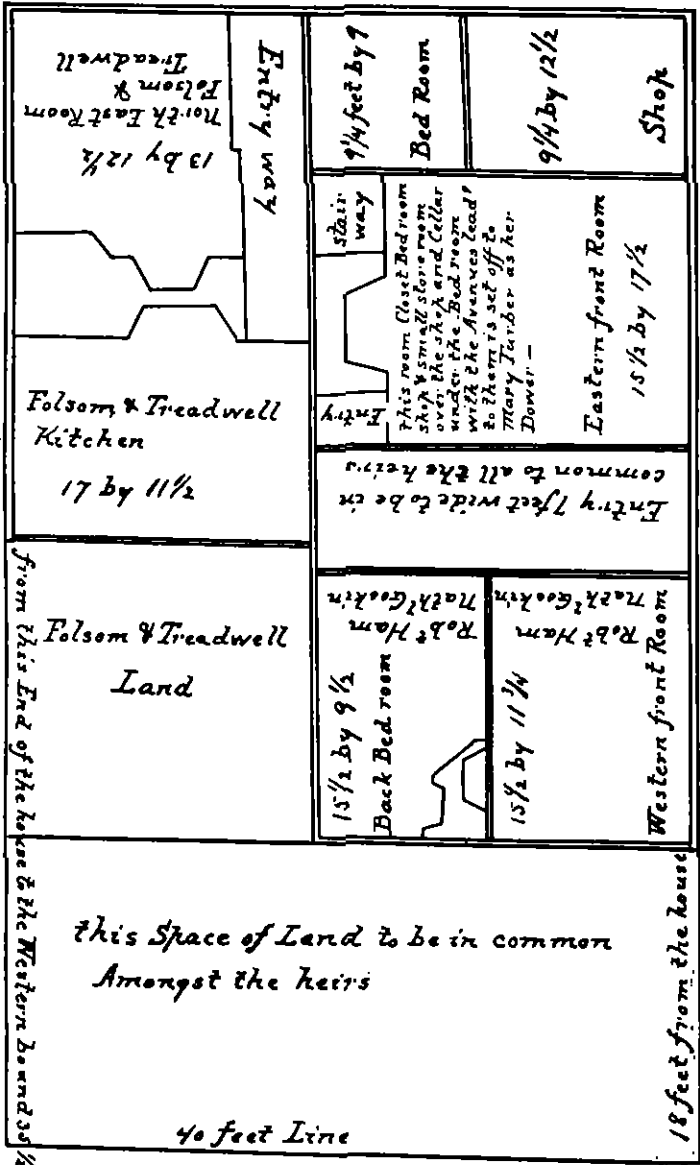 North East Room
Folsom &
Treadwell
13 by 12 1/2
Entry way
9 1/4 feet by 9
Bed Room
9 1/4 by 12 1/2
Shop
stair
way
this room Closet Bedroom
shop & small store room
over the shop and Cellar
under the Bedroom
with the Avenues lead?
to them is set off to
Mary Turber as her
Dower —
Eastern front Room
15 1/2 by 17 1/2
Entry
Folsom & Treadwell
Kitchen
17 by 11 1/2
Entry 7 feet wide to be in
common to all the heirs
Folsom & Treadwell
Land
Robt Ham
Nathl Gookin
15 1/2 by 9 1/2
Back Bedroom
Robt Ham
Nathl Gookin
15 1/2 by 11 3/4
Western front Room
from this End of the house to the Western bound 35 1/2
this Space of Land to be in common
Amongst the heirs
40 feet Line
18 feet from the house